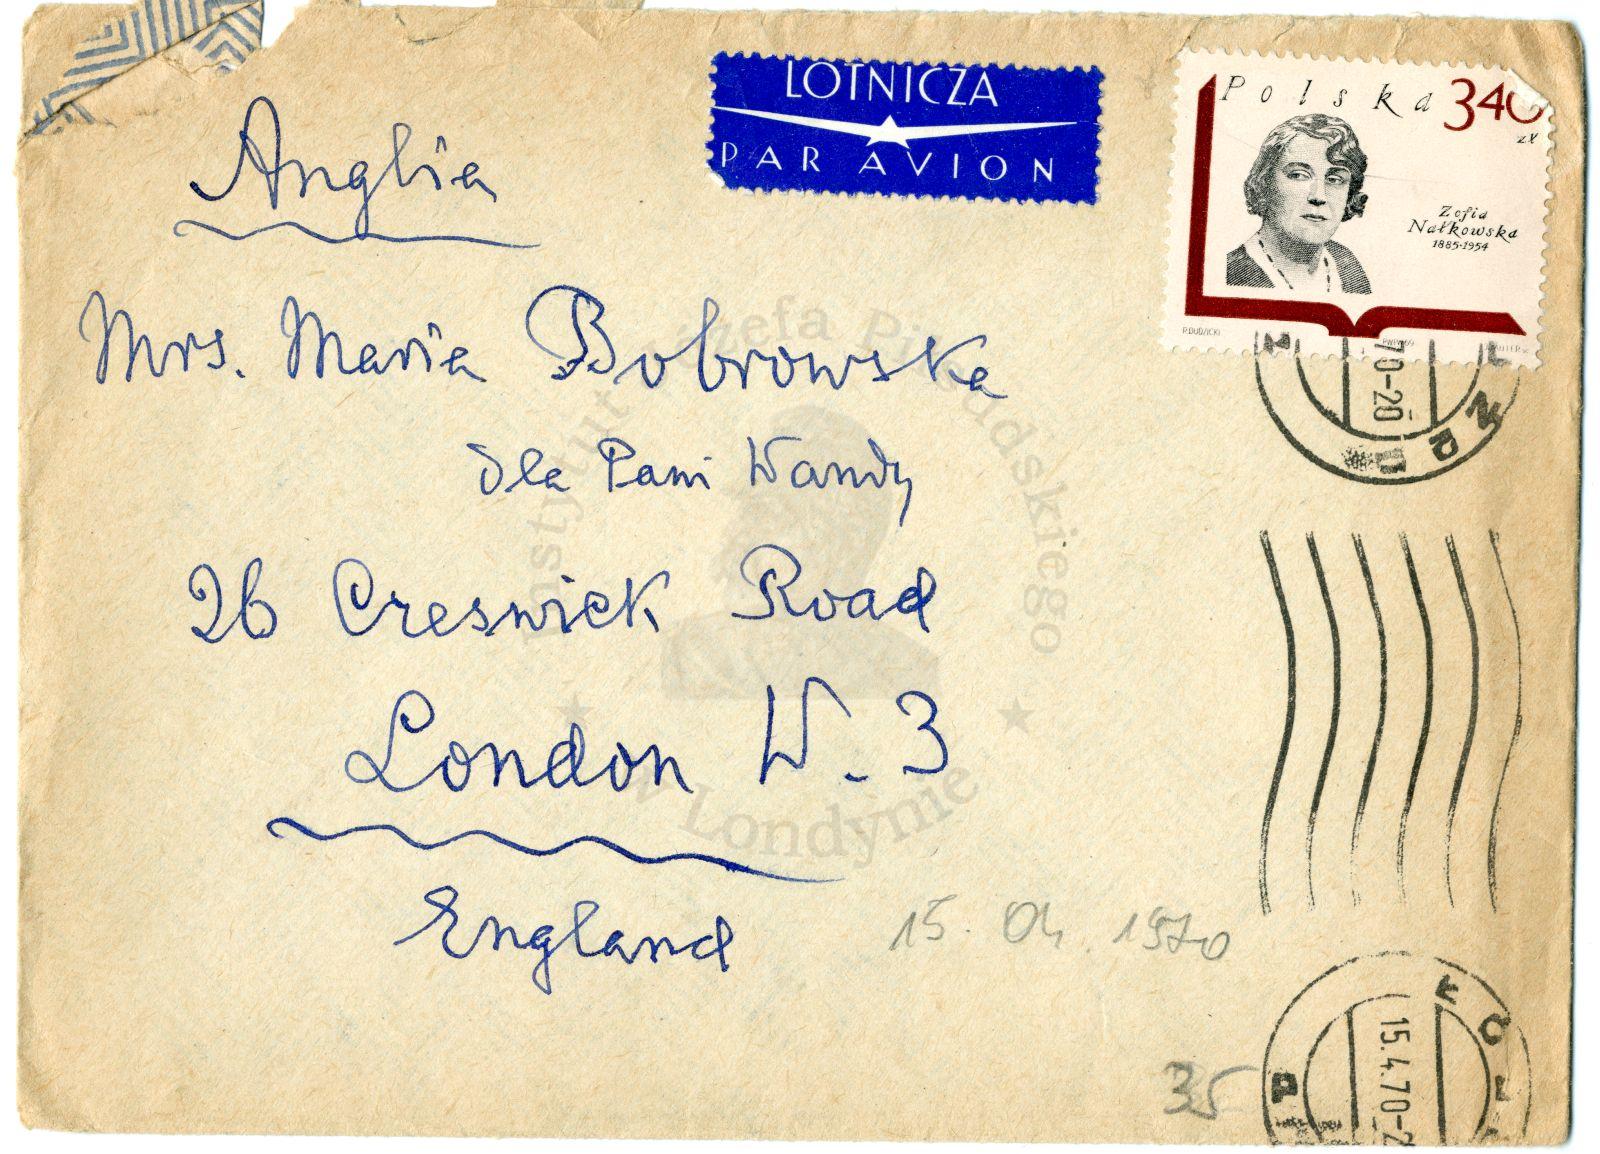 LOTNICZA
PAR AVION
Polska 340
zł
Zofia
Nałkowska
1885-1954
R.DUDZICKI
PWPW 69
Anglia
Mrs. Maria Bobrowska
dla Pani Wandy
26 Creswick Road
London W. 3
England
15. 04. 1970
35
70-20
15.4.70-2
Instytut Józefa Piłsudskiego
w Londynie